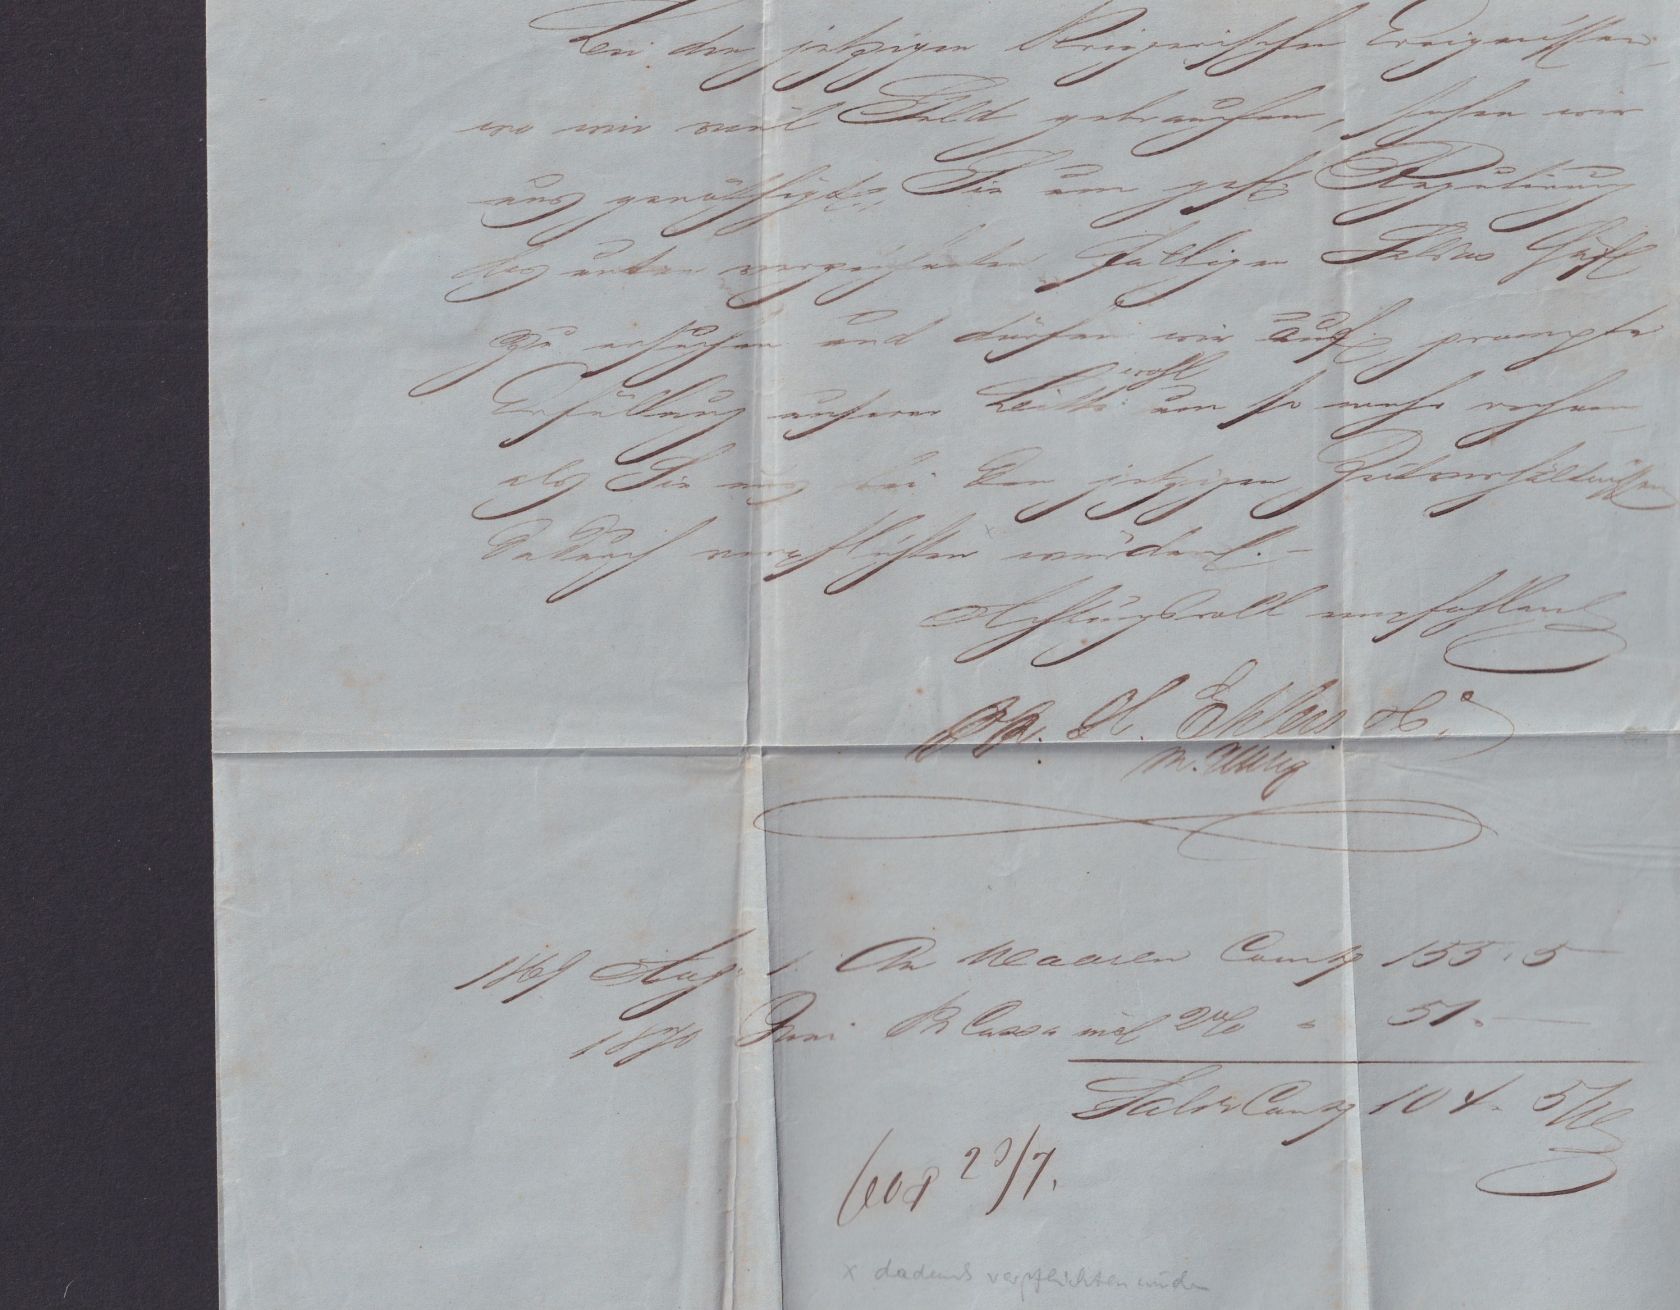 Bei den jetzigen Kriegerischen Ereignissen,
wo wir viel Geld gebrauchen, sehen wir
uns genöthigt, Sie um gefl Regulirung
des unten verzeichneten fälligen Saldos höfl
zu ersuchen und dürfen wir auf prompte
wohl
Erfüllung unserer Bitte um so mehr rechnen,
als Sie uns bei den jetzigen Zeitverhältnissen
dadurch verpflichten würden. –
Achtungsvoll empfohlen
pp. H. Ehlers & Co.
1869 Aug 1. An Waaren 155.5 –
1870 Juni Cassa incl 2% " 51. –
Saldo 104. 5
23/7.
x dadurch verpflichten würden